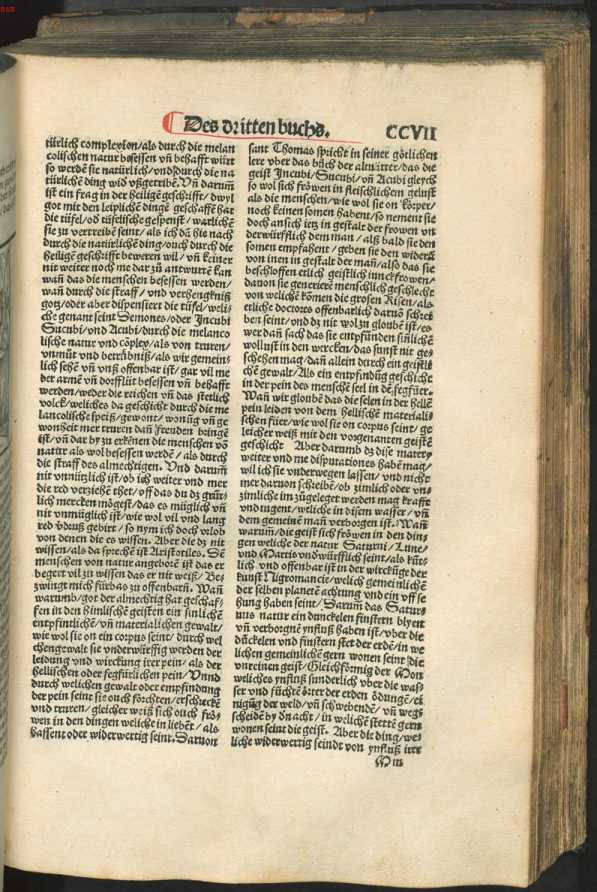 Des dritten buchs. CCVII
türlich complexion/als durch die melan
colischen natur besessen vñ behafft würt
so werdē sie natürlich/vnd durch die na
türlichē ding wid vßgetribē. Vñ darum̄
ist ein frag in der heiligē geschrifft/dwyl
got mit den leiplichē dingē geschaffē hat
die tüfel/od tüfelische gespenst/warlichē
sie zu vertreibē seint/als ich dā hie nach
durch die natürlichē ding/ouch durch die
heilige geschrifft beweren wil/vñ keiner
nit weiter noch me dar zū antwurtē kan
wañ das die menschen besessen werden/
wañ durch die straff/vnd verhengkniß
gotz/oder aber dispensiert die tüfel/weli-
che genant seint Demones/oder Incubi
Sucubi/vnd Acubi/durch die melanco
lische natur vnd cōplex/als von truren/
vnmūt vnd betrübniß/als wir gemein-
lich sehē vñ vnß offenbar ist/gar vil me
der armē vñ dorfflüt besessen vñ behafft
werden/weder die reichen vñ das stetlich
volck/weliches da geschicht durch die me
lancolische speiß/gewont/wonūg vñ ge
wonheit mer truren dañ freuden bringē
ist/vñ dar by zu erkēnen die menschen vō
natur als wol besessen werdē/als durch
die straff des almechtigen. Vnd darum̄
nit vnnützlich ist/ob ich weiter vnd mer
die red verziehē thet/vff das du dz grür-
lich mercken mögest/das es müglich vñ
nit vnmüglich ist/wie wol vil vnd lang
red vdruß gebirt/so nym ich doch vrlob
von denen die es wissen. Aber die dz nit
wissen/als da sprechē ist Aristotiles. Dē
menschen von natur angeborē ist das er
begert vil zu wissen das er nit weiß/Be-
zwingt mich fürbas zu offenbarñ. Wañ
warumb/got der almechtig hat geschaf-
fen in den himlischē geistē ein sinlichē
entpfintlichē/vñ materialichen gewalt/
wie wol sie on ein corpus seint/durch wel
chen gewalt sie vnderwürffig werden der
leidung vnd wirckung irer pein/als der
hellischen oder fegfürlichen pein/Vnnd
durch welichen gewalt oder empfindung
der pein seint sie ouch förchten/erschreckē
vnd truren/gleicher weiß sich ouch frö-
wen in den dingen weliche in liebēt/als
hassent oder widerwertig seint. Daruon
sant Thomas spricht in seiner götlichen
lere vber das būch der almūter/das die
geist Incubi/Sucubi/vñ Acubi gleych
so wol sich fröwen in fleischlichem gelust
als die menschen/wie wol sie on körper/
noch keinen somen habent/so nement sie
doch an sich ietz in gestalt der frowen vñ
der würfflich dem man/alß bald sie den
somen empfahent/geben sie den widerū
von inen in gestalt der man̄/also das sie
beschloffen etlich geistlich inn etfrowen/
dauon sie generierē menschlich geschlecht
von welichē kōmen die grosen Risen/als
etliche doctores offenbarlich daruō schrei
ben seint/vnd dz nit wol zu gloubē ist/es
wer dañ sach das sie entpfünden sinlichē
wollust in den wercken/das sunst nit ge-
schehen mag/dañ allein durch ein geistli
chē gewalt/Als ein entpfindūg geschicht
in der pein des menschē seel in dē fegfüer.
Wañ wir gloubē das die selen in der hellē
pein leiden von dem hellischē materiali-
schen füer/wie wol sie on corpus seint/ge
leicher weiß mit den vorgenanten geistē
geschicht Aber darumb dz dise matery
weiter vnd me disputationes habē mag/
wil ich sie vnderwegen lassen/vnd nicht
mer daruon schreibē/ob zimlich oder vn-
zimliche im zūgeleget werden mag krafft
vnd tugent/weliche in disem wasser/vñ
dem gemeinē man verborgen ist. Wañ
warum̄/die geist sich fröwen in den din-
gen weliche der natur Saturni/Lune/
vnd Martis vndwürfflich seint/als kürt-
lich vnd offenbar ist in der wirckūge der
kunst Nigromancie/welich gemeinlichē
der selben planetē achtung vnd ein vff se
hung haben seint/Darum̄ das Satur-
nus natur ein dunckelen finstern blyent
vñ verborgnē ynfluß haben ist/vber die
dūckelen vnd finstern stet der erdē/in we
lichen gemeinlichē gern wonen seint die
vnreinen geist/Gleichförmig der Mon
weliches ynfluß sunderlich vber die was-
ser vnd füchtē örter der erden ödungē/ei
nigūg der weld/vñ schwebendē/vñ wegs
scheidē by der nacht/in welichē stettē gern
wonen seint die geist. Aber die ding/we-
liche widerwertig seindt von ynfluß irer
M iii